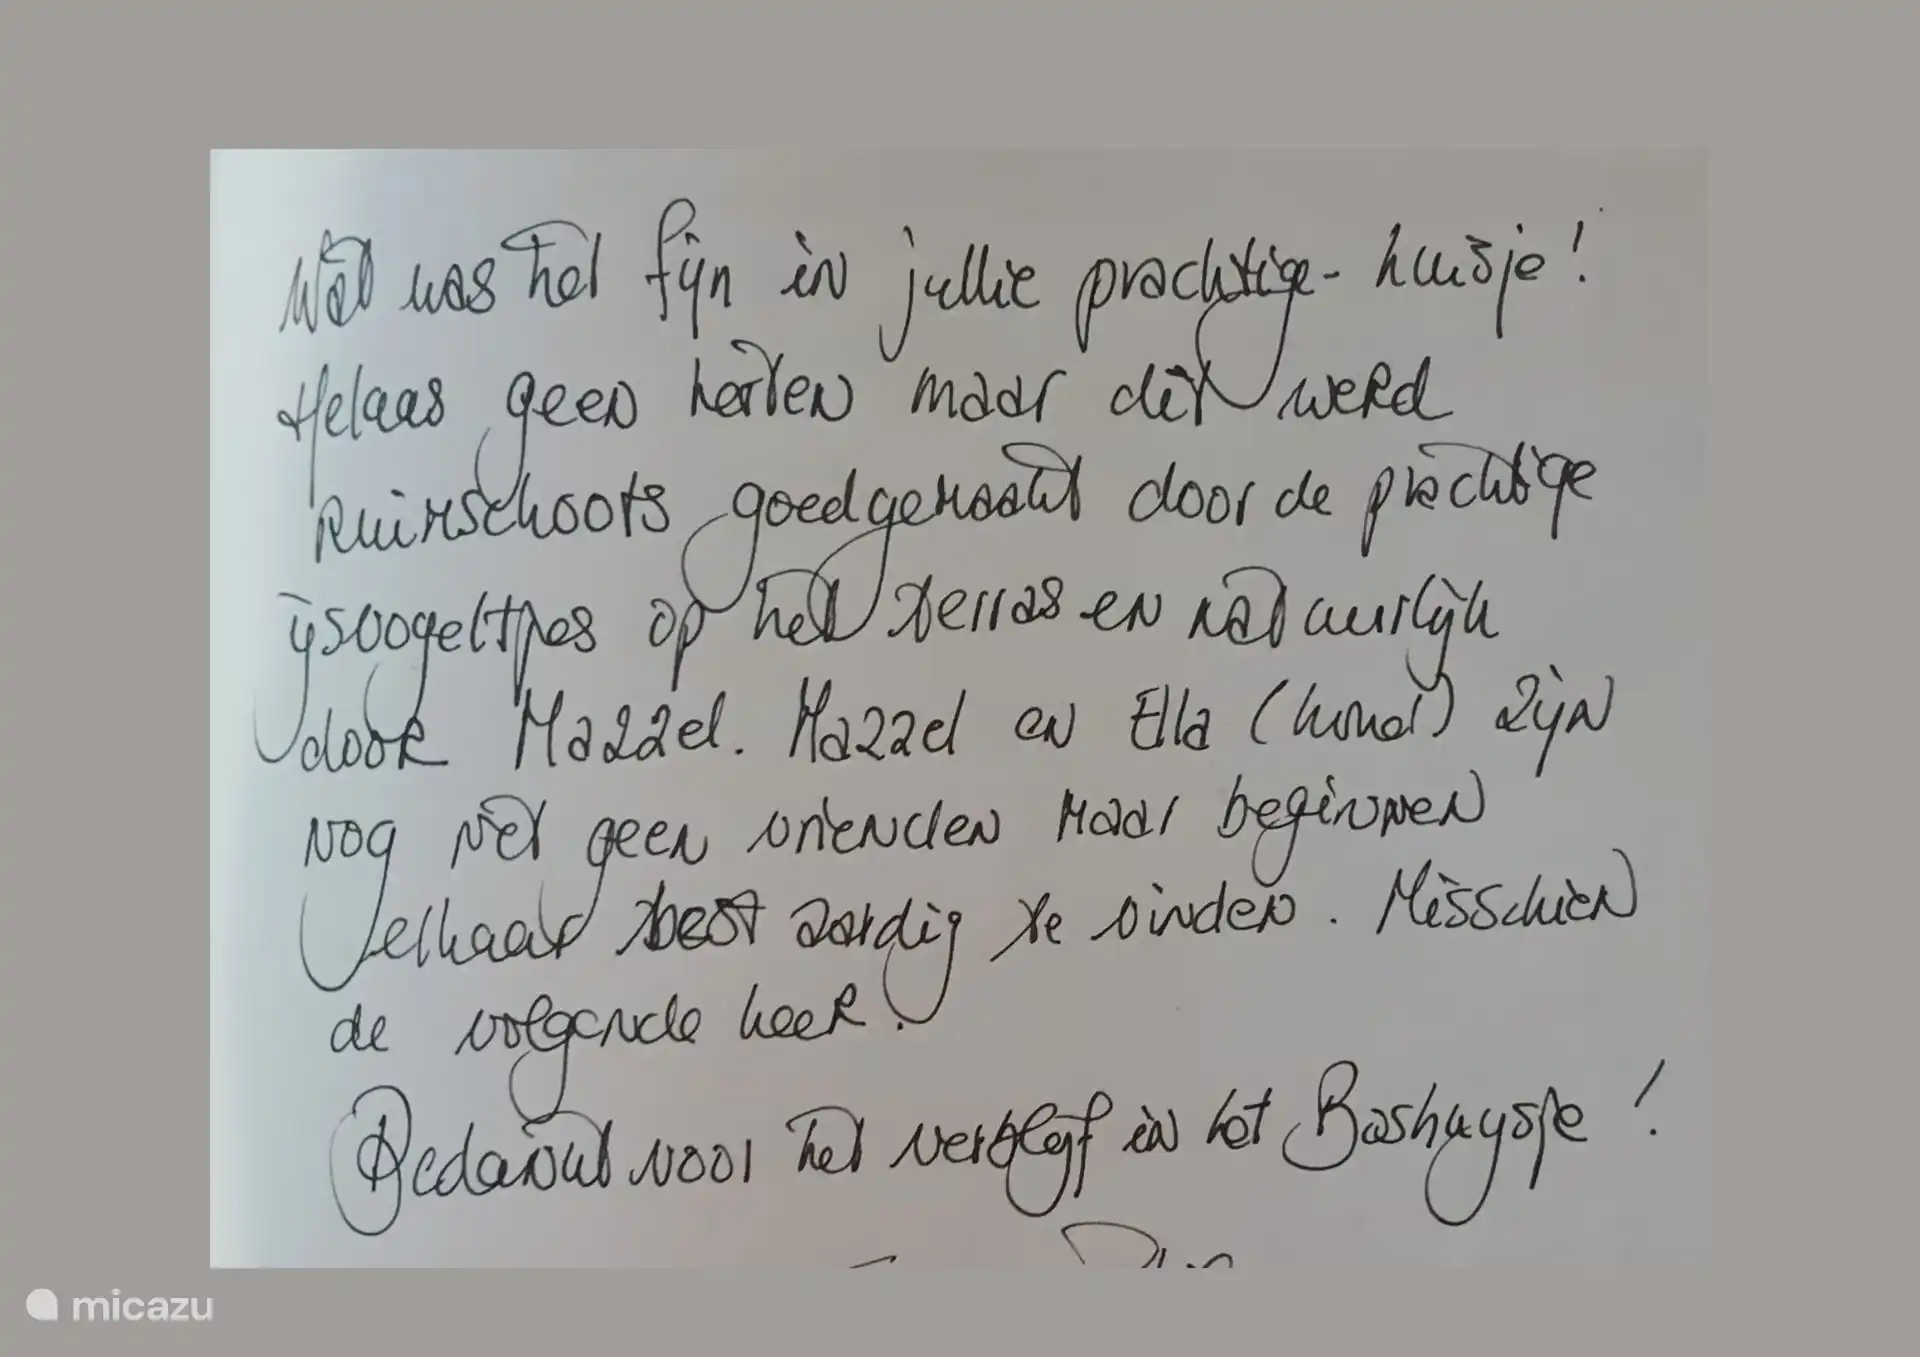 Wat was het fijn in jullie prachtige huisje!
Helaas geen herten maar dit werd
ruimschoots goedgemaakt door de prachtige
ijsvogeltjes op het terras en natuurlijk
door Mazzel. Mazzel en Ella (hond) zijn
nog net geen vrienden maar beginnen
elkaar best aardig te vinden. Misschien
de volgende keer.
Bedankt voor het verblijf in het Boshuysje!
micazu